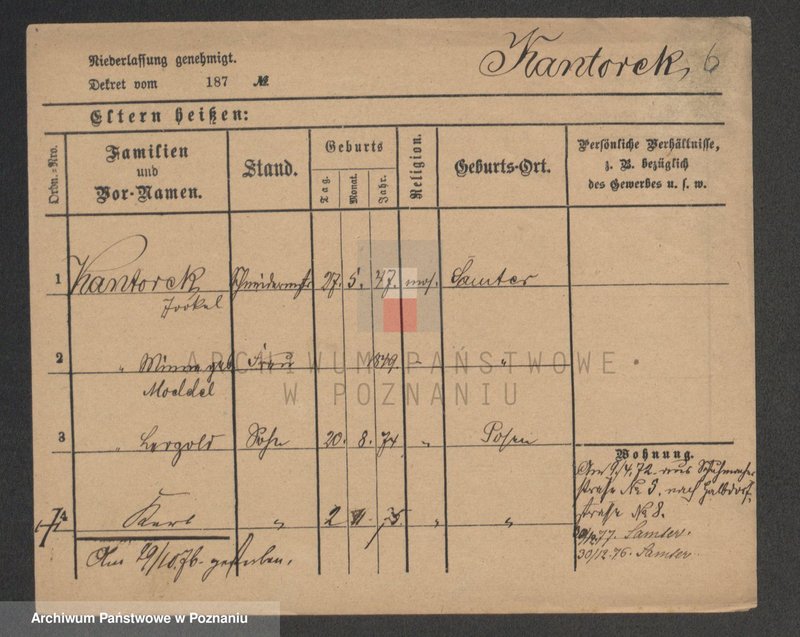 Niederlassung genehmigt.
Kantorek, 6
Dekret vom 187 №
Eltern heißen:
Ordn.-Nro.
Familien
und
Vor-Namen.
Stand.
Geburts
Tag.
Monat.
Jahr.
Religion.
Geburts-Ort.
Persönliche Verhältnisse,
z. B. bezüglich
des Gewerbes u. s. w.
1 Kantorek 27. 5. 47. mos. Samter
2 " Minna geb Frau 1849. " "
Moddel
3 " Leopold Sohn 20. 8. 74 " Posen
4 " " "
Am 29/10 76 gestorben.
Wohnung.
Am 9/4. 72 aus Schuhmacher
straße № 3. nach Halbdorf-
straße № 8.
77. Samter.
30/12.76. Samter.
ARCHIWUM PAŃSTWOWE
W POZNANIU
Archiwum Państwowe w Poznaniu